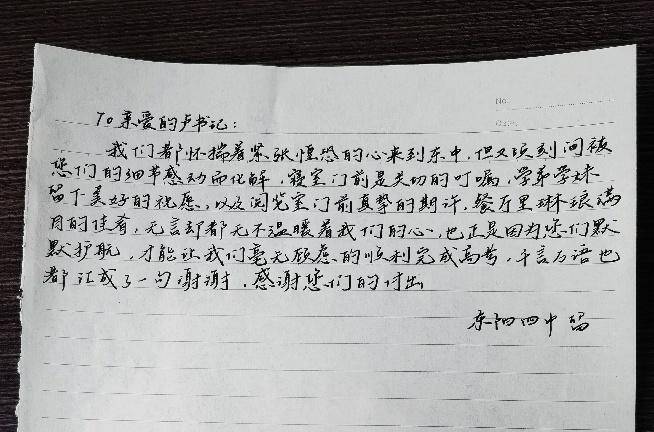 No.
Date.
To 亲爱的卢书记：
我们都怀揣着紧张惶恐的心来到东中，但又顷刻间被
您们的细节感动而化解，寝室门前是关切的叮嘱，学弟学妹
留下美好的祝愿，以及阅览室门前真挚的期许，餐厅里琳琅满
目的佳肴，无言却都无不温暖着我们的心，也正是因为您们默
默护航，才能让我们毫无顾虑的顺利完成高考，千言万语也
都汇成了一句谢谢，感谢您们的付出
东阳四中 留